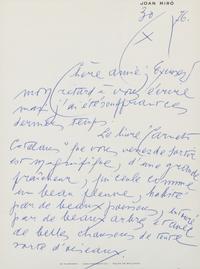 JOAN MIRÓ
30 76.
X
Chère amie, Excusez
mon retard à vous écrire
mais j'ai été souffrant ces
derniers temps.
Le livre "Carnets
Catalans" que vous venez de sortir
est magnifique, d'une grande
fraîcheur, qui coule comme
un beau fleuve, habité
par de beaux poissons, entouré
par de beaux arbres,
de belles chansons de toute
sorte d'oiseaux.